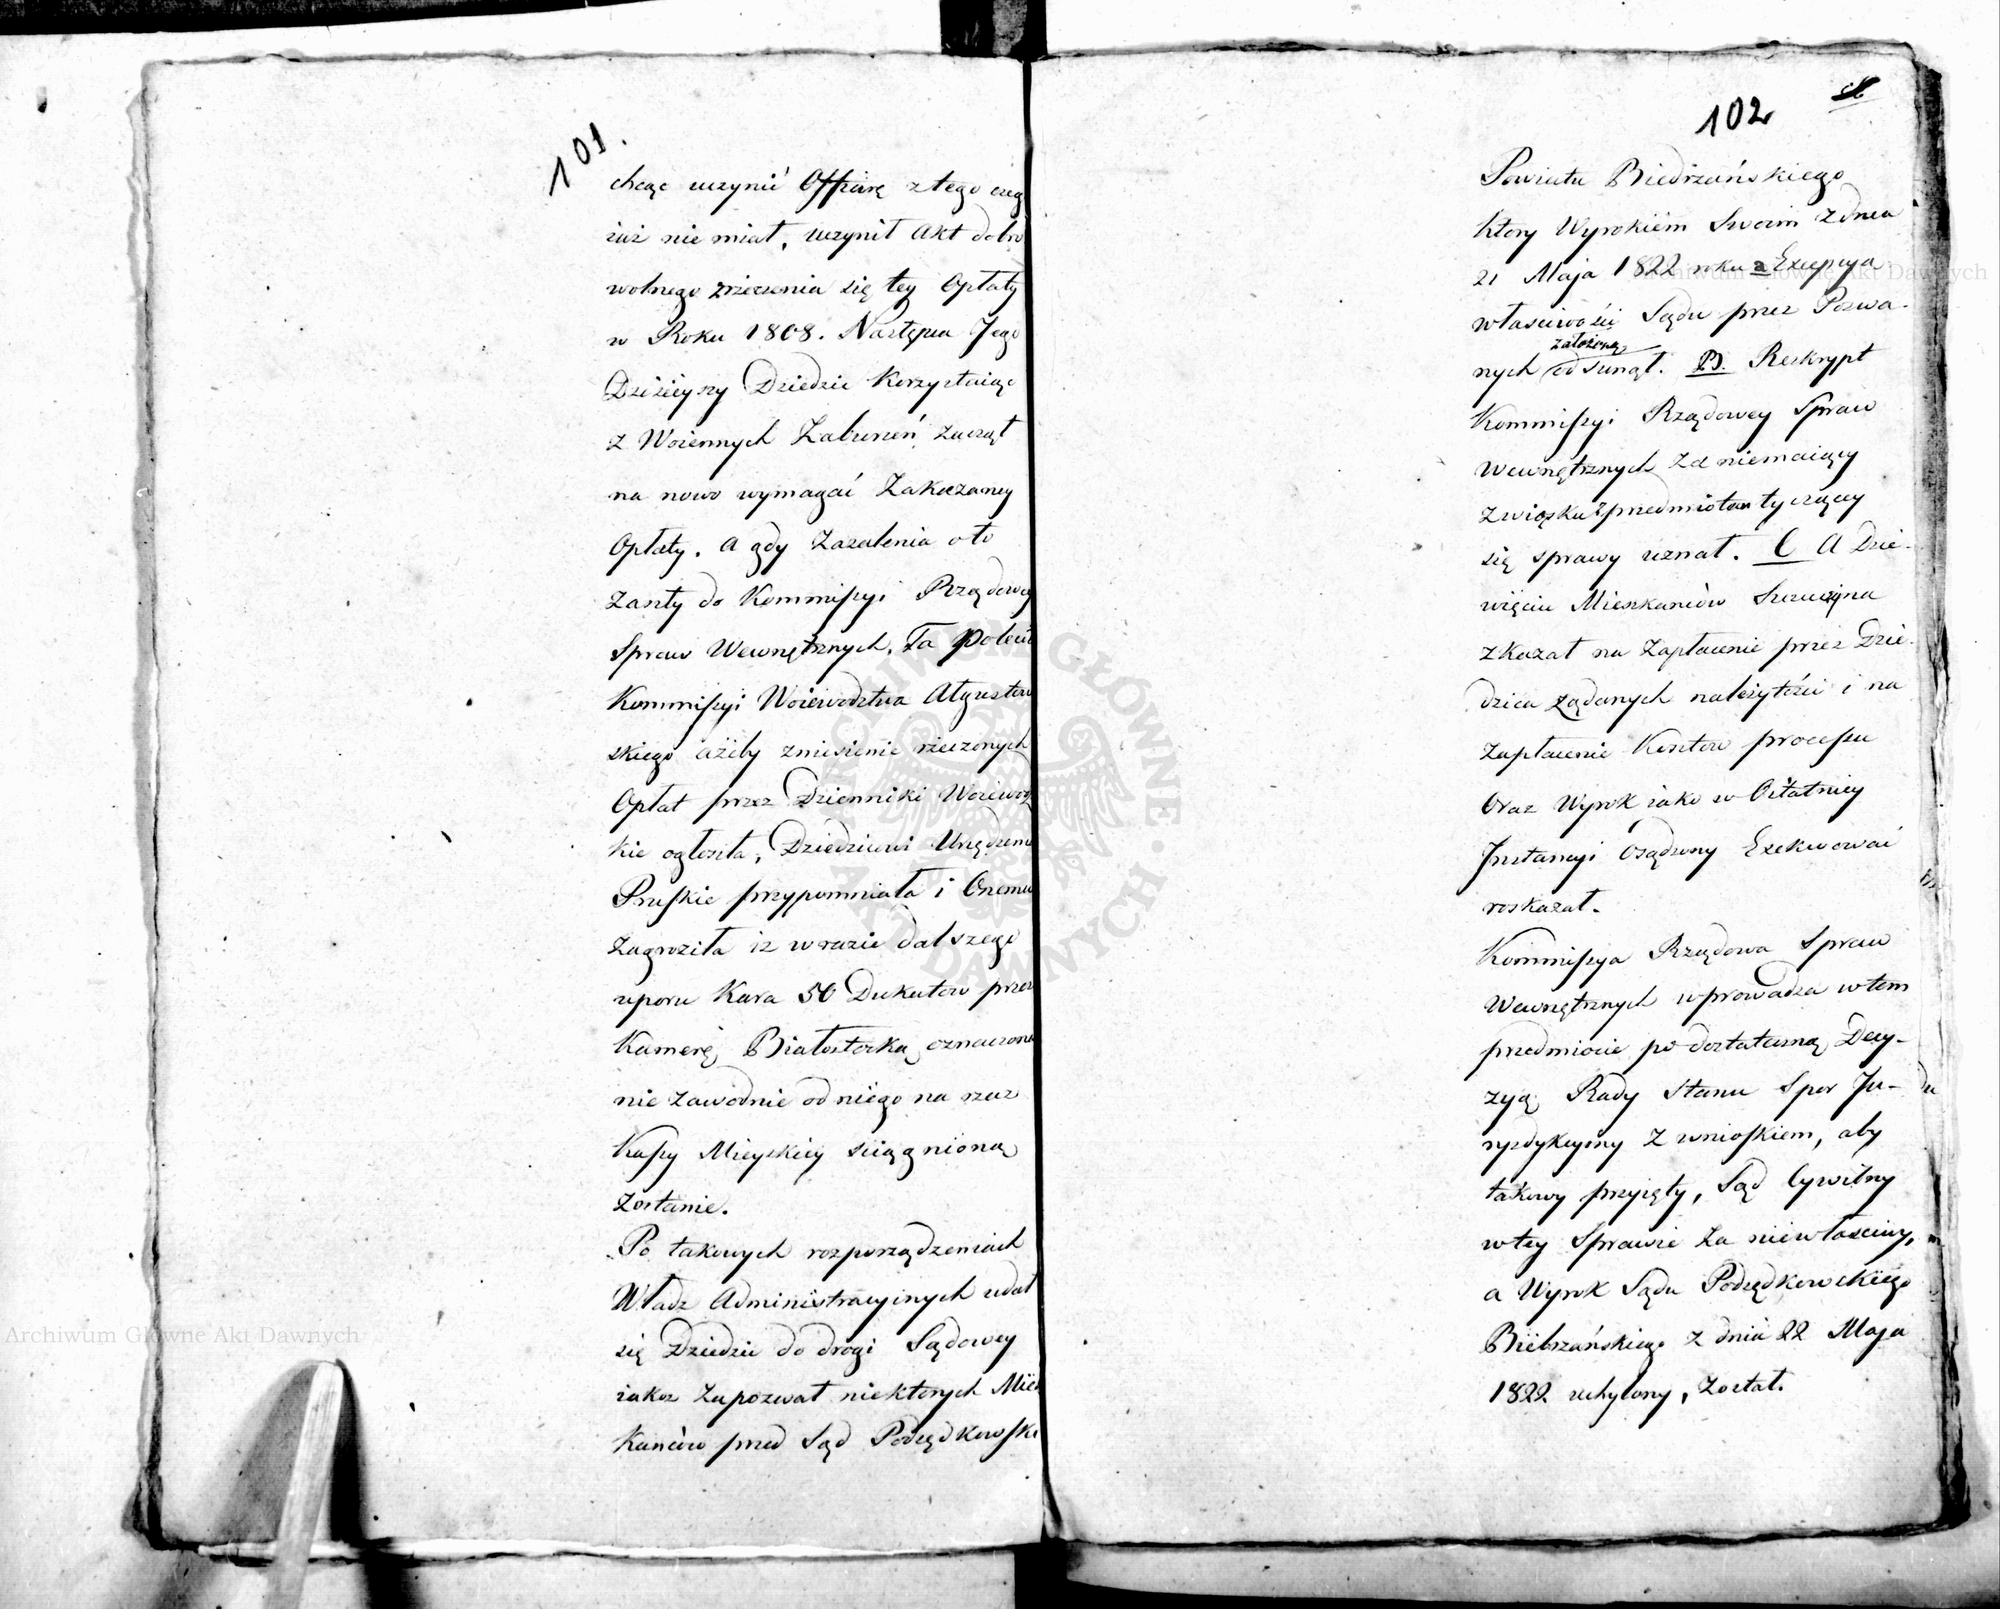 101.
chcąc uczynić Offiarę z tego czeg
iuż nie miał, uczynił Akt dobro
wolnego zrzeczenia się tey Opłaty
w Roku 1808. Następca Jego
Dzisieyszy Dziedzic Korzystaiąc
z Woiennych Zaburzeń zaczął
na nowo wymagać Zakazaney
Opłaty. A gdy Zażalenia o to
Zaszły do Kommissyi Rządowey
Spraw Wewnętrznych, Ta poleciła
Kommissyi Woiewodztwa Augustow
skiego ażeby zniesienie rzeczonych
Opłat przez Dzienniki Woiewodz
kie ogłosiła, Dziedzicowi Urządzenie
Pruskie przypomniała i Onemu
Zagroziła iż w razie dalszego
uporu Kara 50 Dukatow przez
Kamerę Białostocką oznaczona
nie zawodnie od niego na rzecz
Kassy Mieyskiey sciągnioną
Zostanie.
Po takowych rozporządzeniach
Władz Administracyinych udał
się Dziedzic do drogi Sądowey
iakoż Zapozwał niektorych Miesz
Kańcow przed Sąd Podsędkowski
102
Powiatu Biebrzańskiego
ktory Wyrokiem Swoim z dnia
21 Maja 1822 roku a Excepcyą
właściwości Sądu przez Pozwa-
założoną
nych odsunął. B. Reskrypt
Kommissyi Rządowey Spraw
Wewnętrznych Za niemaiący
Związku z przedmiotem tyczącey
się sprawy uznał. C A Dzie-
więciu Mieszkańcow Szczuczyna
zkazał na Zapłacenie przez Dzie-
dzica żądanych należytości i na
Zapłacenie Kosztow processu
Oraz Wyrok iako w Ostatniey
Instancyi Osądzony Exekwować
roskazał.
Kommissya Rządowa Spraw
Wewnętrznych wprowadza w tem
przedmiocie po dostateczną Decy-
zyą Rady Stanu Spor Ju-
rysdykcyiny z wnioskiem, aby
takowy przyięty, Sąd Cywilny
w tey Sprawie Za niewłaściwy,
a Wyrok Sądu Podsędkowskiego
Biebrzańskiego z dnia 22 Maja
1822 uchylony, Został.
Archiwum Główne Akt Dawnych
Archiwum Główne Akt Dawnych
ARCHIWUM GŁÓWNE AKT DAWNYCH